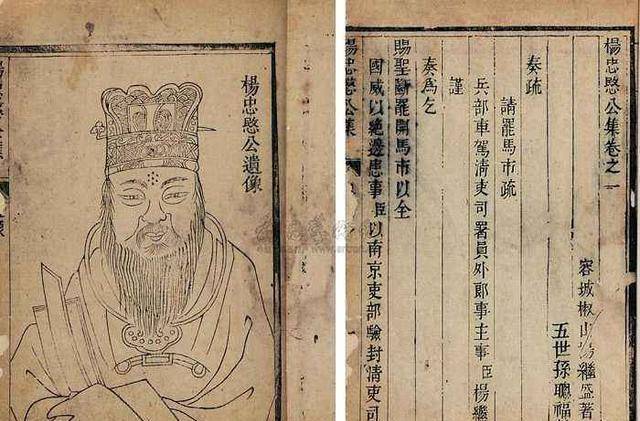 楊忠愍公遺像
楊忠愍公集卷之一
容城椒山楊繼盛著
五世孫聰福
奏疏
請罷馬市疏
兵部車駕清吏司署員外郎事主事臣楊繼
謹
奏爲乞
賜聖斷罷開馬市以全
國威以絶邊患事臣以南京吏部驗封清吏司
楊忠愍公集